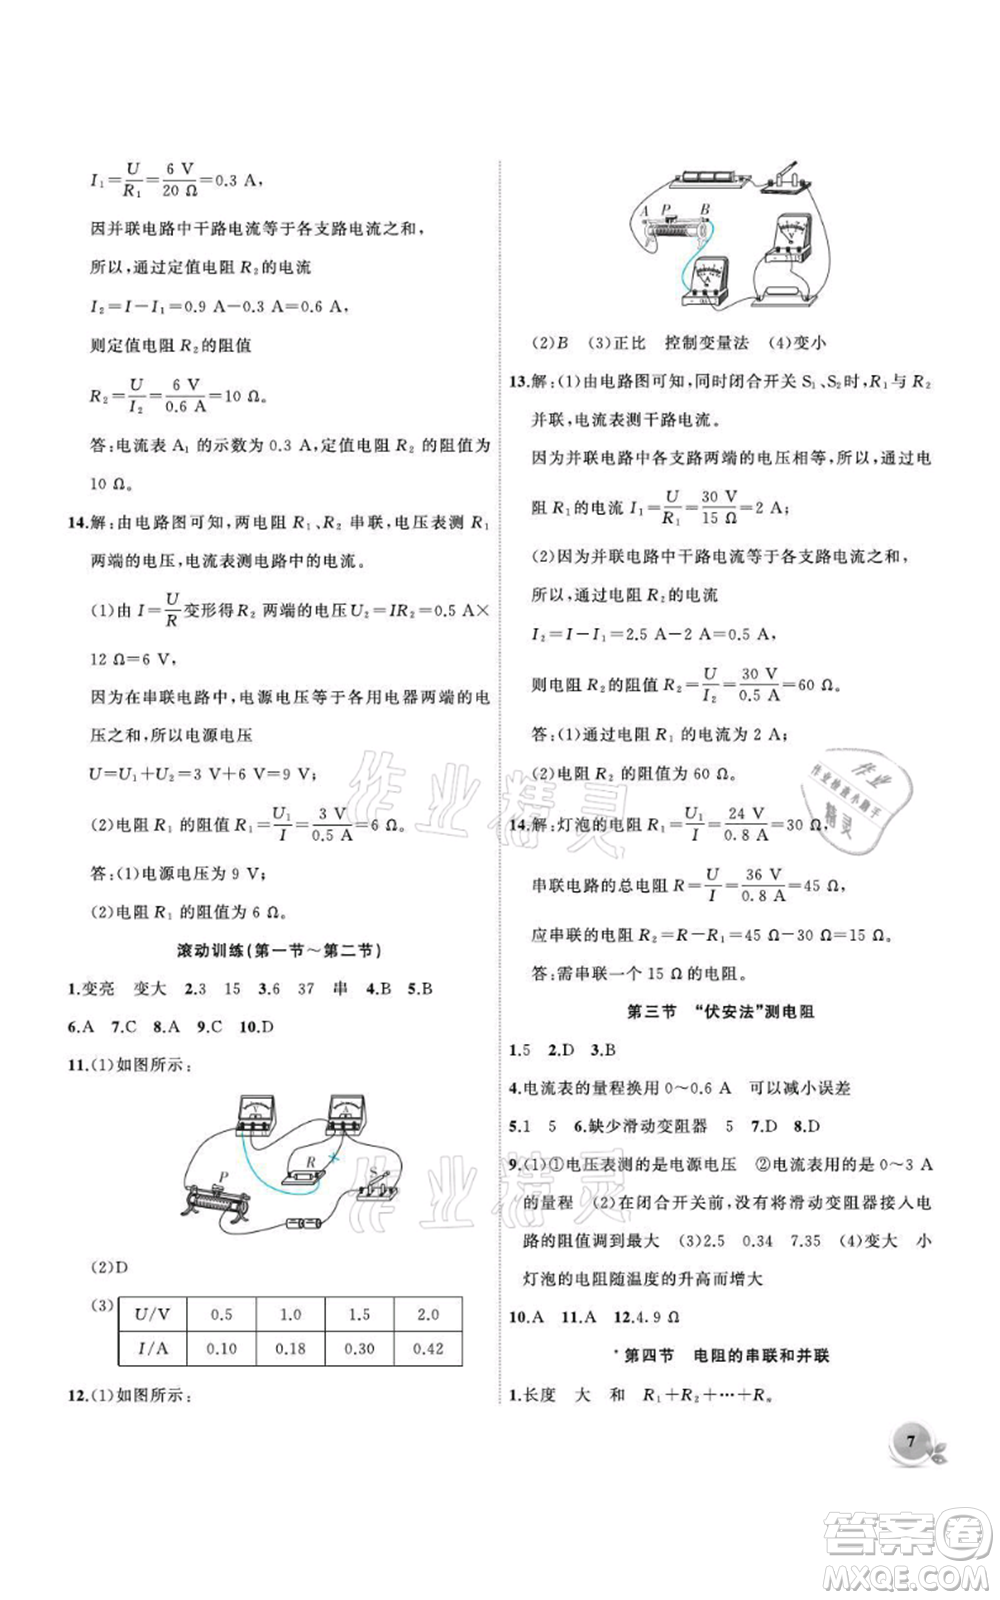 I₁=U/R₁=6 V/20 Ω=0.3 A,
因并联电路中干路电流等于各支路电流之和,
所以,通过定值电阻 R₂的电流
I₂=I-I₁=0.9 A-0.3 A=0.6 A,
则定值电阻 R₂的阻值
R₂=U/I₂=6 V/0.6 A=10 Ω。
答:电流表 A₁ 的示数为0.3 A,定值电阻 R₂ 的阻值为
10 Ω。
14.解:由电路图可知,两电阻 R₁、R₂ 串联,电压表测 R₁
两端的电压,电流表测电路中的电流。
(1)由 I=U/R变形得R₂ 两端的电压U₂=IR₂=0.5 A×
12 Ω=6 V,
因为在串联电路中,电源电压等于各用电器两端的电
压之和,所以电源电压
U=U₁+U₂=3 V+6 V=9 V;
(2)电阻 R₁ 的阻值R₁=U₁/I=3 V/0.5 A=6 Ω。
答:(1)电源电压为 9 V;
(2)电阻 R₁ 的阻值为6 Ω。
滚动训练(第一节～第二节)
1.变亮 变大 2.3 15 3.6 37 串 4.B 5.B
6.A 7.C 8.A 9.C 10.D
11.(1)如图所示:
V A
R
P S
(2)D
(3) U/V 0.5 1.0 1.5 2.0
I/A 0.10 0.18 0.30 0.42
12.(1)如图所示:
A P B
V
A
(2)B (3)正比 控制变量法 (4)变小
13.解:(1)由电路图可知,同时闭合开关 S₁、S₂时,R₁与 R₂
并联,电流表测干路电流。
因为并联电路中各支路两端的电压相等,所以,通过电
阻 R₁的电流 I₁=U/R₁=30 V/15 Ω=2 A;
(2)因为并联电路中干路电流等于各支路电流之和,
所以,通过电阻 R₂的电流
I₂=I-I₁=2.5 A-2 A=0.5 A,
则电阻 R₂的阻值 R₂=U/I₂=30 V/0.5 A=60 Ω。
答:(1)通过电阻 R₁ 的电流为 2 A;
(2)电阻 R₂ 的阻值为 60 Ω。
14.解:灯泡的电阻 R₁=U₁/I=24 V/0.8 A=30 Ω,
串联电路的总电阻 R=U/I=36 V/0.8 A=45 Ω,
应串联的电阻 R₂=R-R₁=45 Ω-30 Ω=15 Ω。
答:需串联一个 15 Ω的电阻。
第三节 “伏安法”测电阻
1.5 2.D 3.B
4.电流表的量程换用 0～0.6 A 可以减小误差
5.1 5 6.缺少滑动变阻器 5 7.D 8.D
9.(1)①电压表测的是电源电压 ②电流表用的是 0～3 A
的量程 (2)在闭合开关前,没有将滑动变阻器接入电
路的阻值调到最大 (3)2.5 0.34 7.35 (4)变大 小
灯泡的电阻随温度的升高而增大
10.A 11.A 12.4.9 Ω
*第四节 电阻的串联和并联
1.长度 大 和 R₁+R₂+…+Rₙ
7
作业精灵
作业精灵
作业
作业检查小助手
精灵
答案圈
MXQE.COM